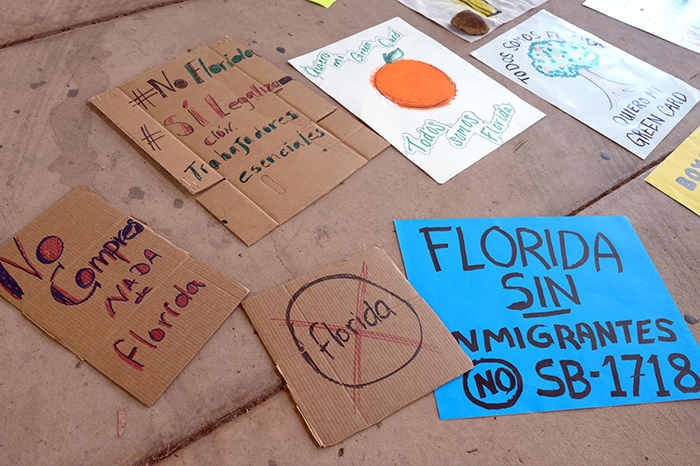 #No Florida
#SÍ Legaliza
ción
Trabajadores
esenciales
Quiero
mi Green Card
Todos
somos
Florida
TODOS SOMOS FLORIDA
QUIERO MI
GREEN CARD
BO
No
Compres
NADA
de
Florida
florida
FLORIDA
SIN
NMIGRANTES
NO SB-1718